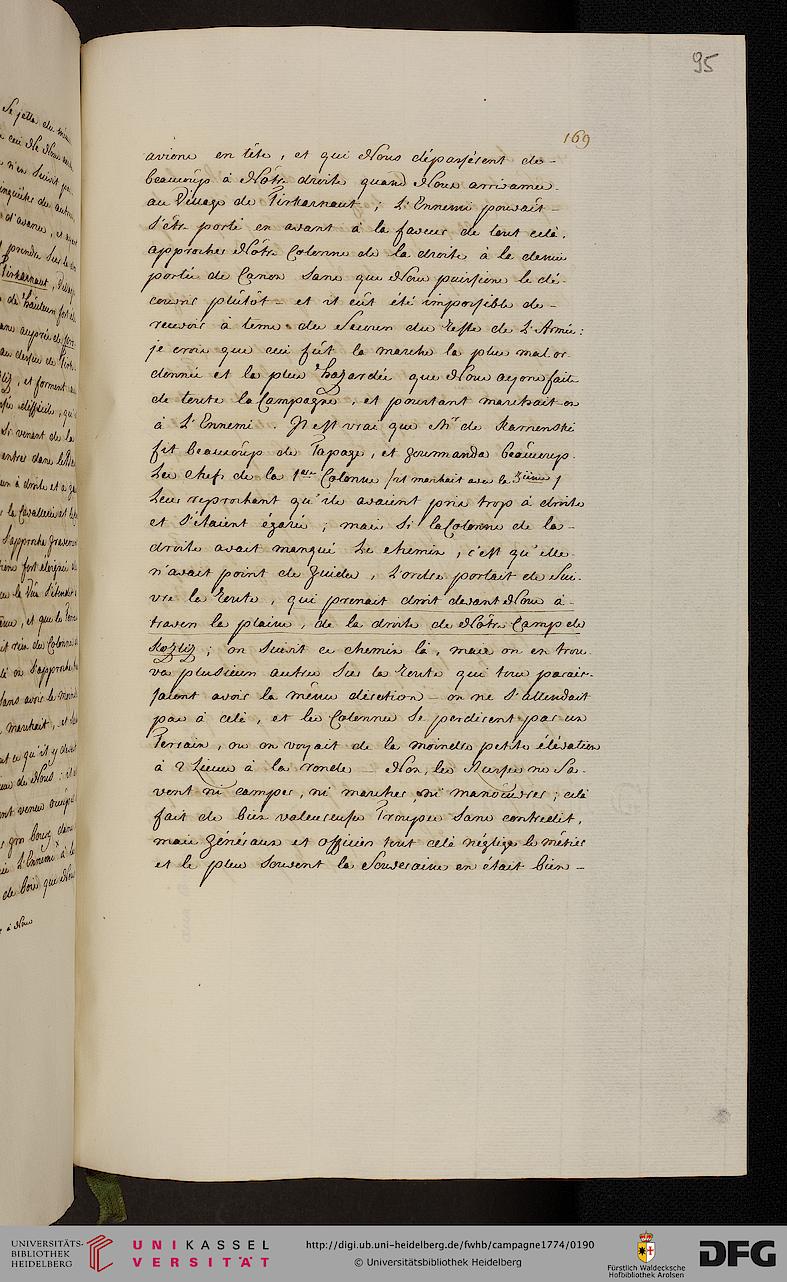 95
169
avions en tête, et qui Nous dépassérent de-
beaucoup à Nôtre droite quand Nous arrivames
au Village de Tirkarnaut; L'Ennemi pouvait-
s'être porté en avant à la faveur de tout celà,
approcher Nôtre Colonne de la droite à la demie
portée de Canon sans que Nous puissions le dé-
couvrir plûtôt - et il eût été impossible de-
recevoir à tems du Secours du Reste de L'Armée:
je crois que ceci fût la marche la plus mal or-
donnée et la plus hazardée que Nous ayons faite
de toute la Campagne, et pourtant marchait-on
à L'Ennemi. Il est vrai que Mr de Kamenski
fit beaucoup de Tapage, et gourmanda beaucoup
Les chefs de la 1ere Colonne /:il marchait avec la 3ieme/
Leur reprochant qu'ils avaient pris trop à droite
et s'étaient égarés; mais si la Colonne de la-
droite avait manqué Le chemin, c'est qu'elle
n'avait point de guides, L'ordre portait de Sui-
vre la Route, qui prenait droit devant Nous à-
travers la plaine, de la droite de Nôtre Camp de
Kozliz; on Suivit ce chemin là, mais on en trou-
va plusieurs autres Sur la Route qui tous parais-
saient avoir la même direction - on ne s'attendait
pas à celà, et les Colonnes Se perdirent par un
Terrain, ou on voyait de la moindre petite élévation
à 2 Lieues à la ronde - Non, les Russes ne Sa-
vent ni camper, ni marcher, ni manoeuvrer; celà
fait de bien valeureuses Trouppes Sans contredit,
mais Généraux et officiers tout celà néglige le métier
et le plus Souvent la Souveraine en était bien-
UNIVERSITÄTS-
BIBLIOTHEK
HEIDELBERG
UNIKASSEL
VERSITÄT
http://digi.ub.uni-heidelberg.de/fwhb/campagne1774/0190
© Universitätsbibliothek Heidelberg
Fürstlich Waldecksche
Hofbibliothek Arolsen
DFG